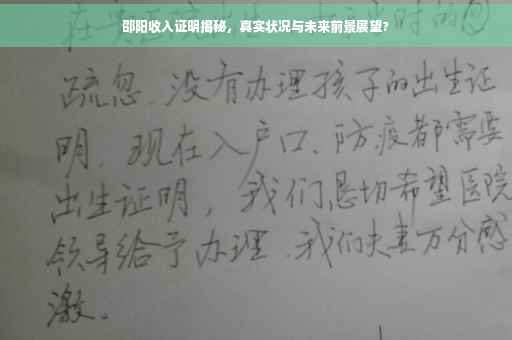 邵阳收入证明揭秘，真实状况与未来前景展望？
疏忽、没有办理孩子的出生证
明、现在入户口、防疫都需要
出生证明，我们恳切希望医院
领导给予办理、我们夫妻万分感
激。